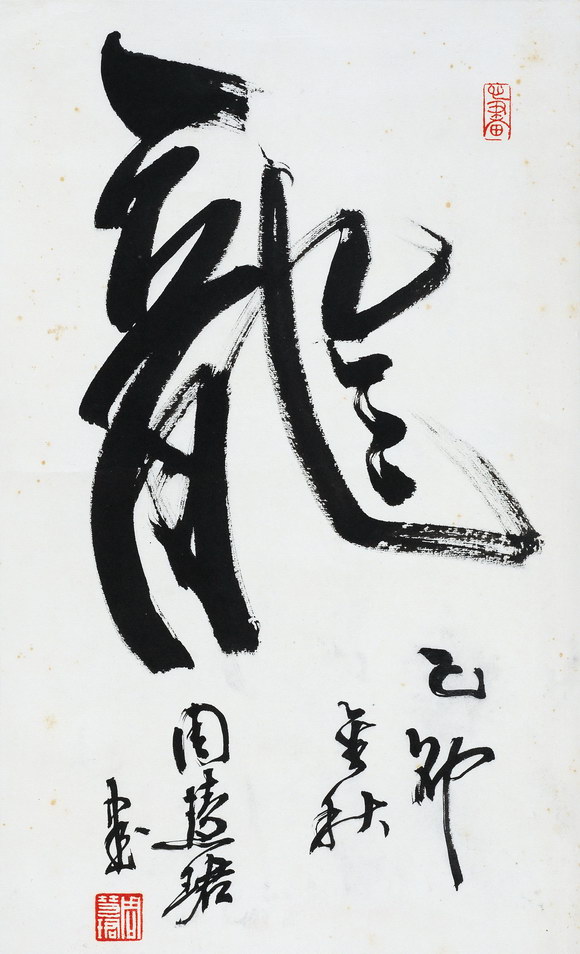 龍
乙卯
金秋
周慧珺
書